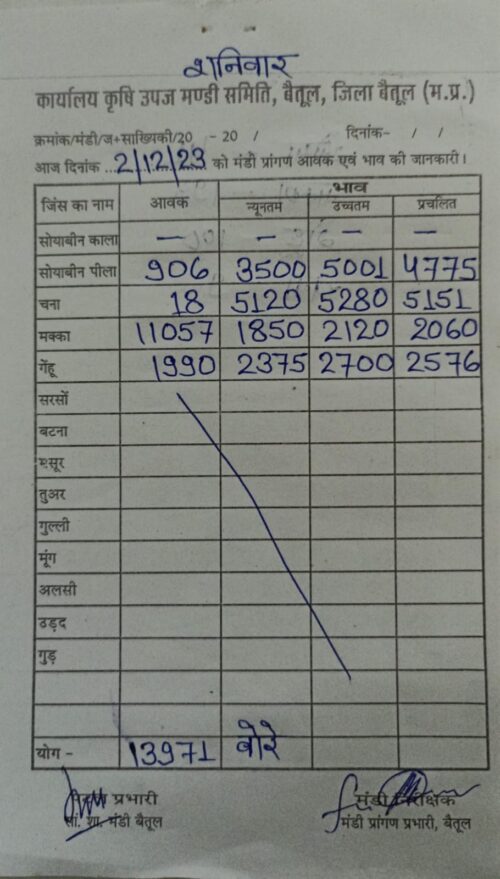 शनिवार
कार्यालय कृषि उपज मण्डी समिति, बैतूल, जिला बैतूल (म.प्र.)
क्रमांक/मंडी/ज+साख्यिकी/20 - 20 / दिनांक- / /
आज दिनांक ..2/12/23 को मंडी प्रांगण आवक एवं भाव की जानकारी।
जिंस का नाम आवक भाव
न्यूनतम उच्चतम प्रचलित
सोयाबीन काला — — — —
सोयाबीन पीला 906 3500 5001 4775
चना 18 5120 5280 5151
मक्का 11057 1850 2120 2060
गेंहू 1990 2375 2700 2576
सरसों
बटना
मसूर
तुअर
गुल्ली
मूंग
अलसी
उड़द
गुड़
योग - 13971 बोरे
प्रभारी मंडी निरीक्षक
सां. शा. मंडी बैतूल मंडी प्रांगण प्रभारी, बैतूल